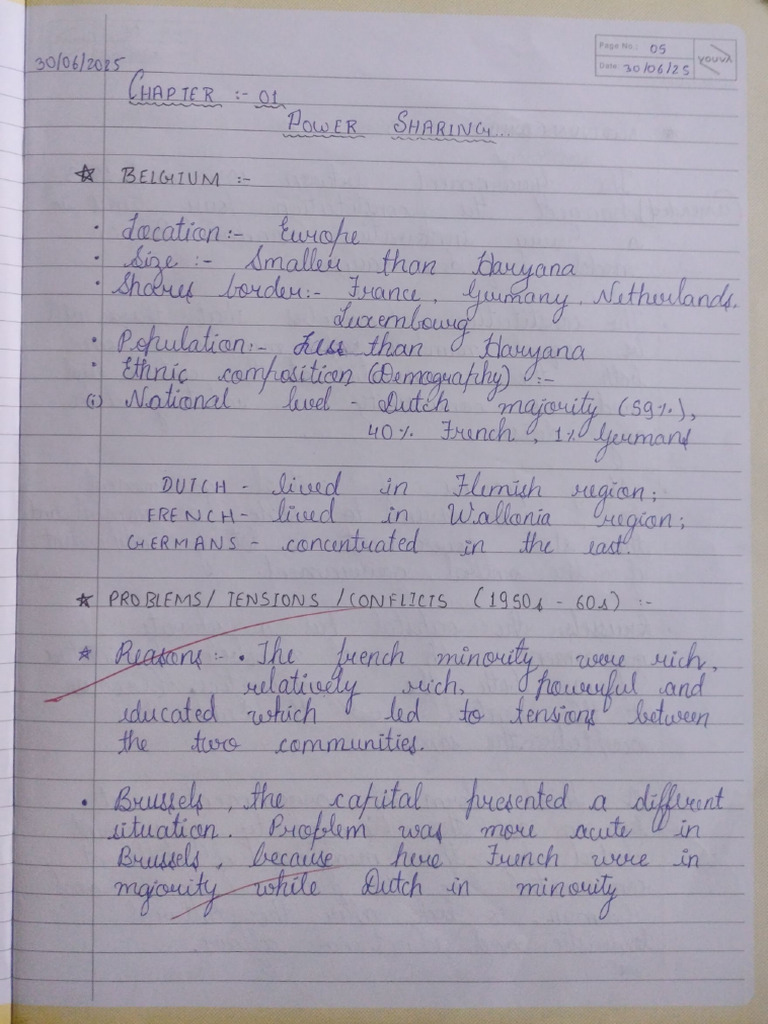 30/06/2025
Page No.: 05
Date: 30/06/25
youva
CHAPTER :- 01
POWER SHARING...
☆ BELGIUM :-
· Location:- Europe
· Size :- Smaller than Haryana
· Shares border:- France, Germany, Netherlands,
Luxembourg
· Population:- Less than Haryana
· Ethnic composition (Demography) :-
(i) National level - Dutch majority (59%),
40% French, 1% Germans
DUTCH - lived in Flemish region;
FRENCH - lived in Wallonia region;
GERMANS - concentrated in the east.
☆ PROBLEMS / TENSIONS / CONFLICTS (1950s - 60s) :-
☆ Reasons :- · The french minority were rich,
relatively rich, powerful and
educated which led to tensions between
the two communities.
· Brussels, the capital presented a different
situation. Problem was more acute in
Brussels, because here French were in
majority while Dutch in minority